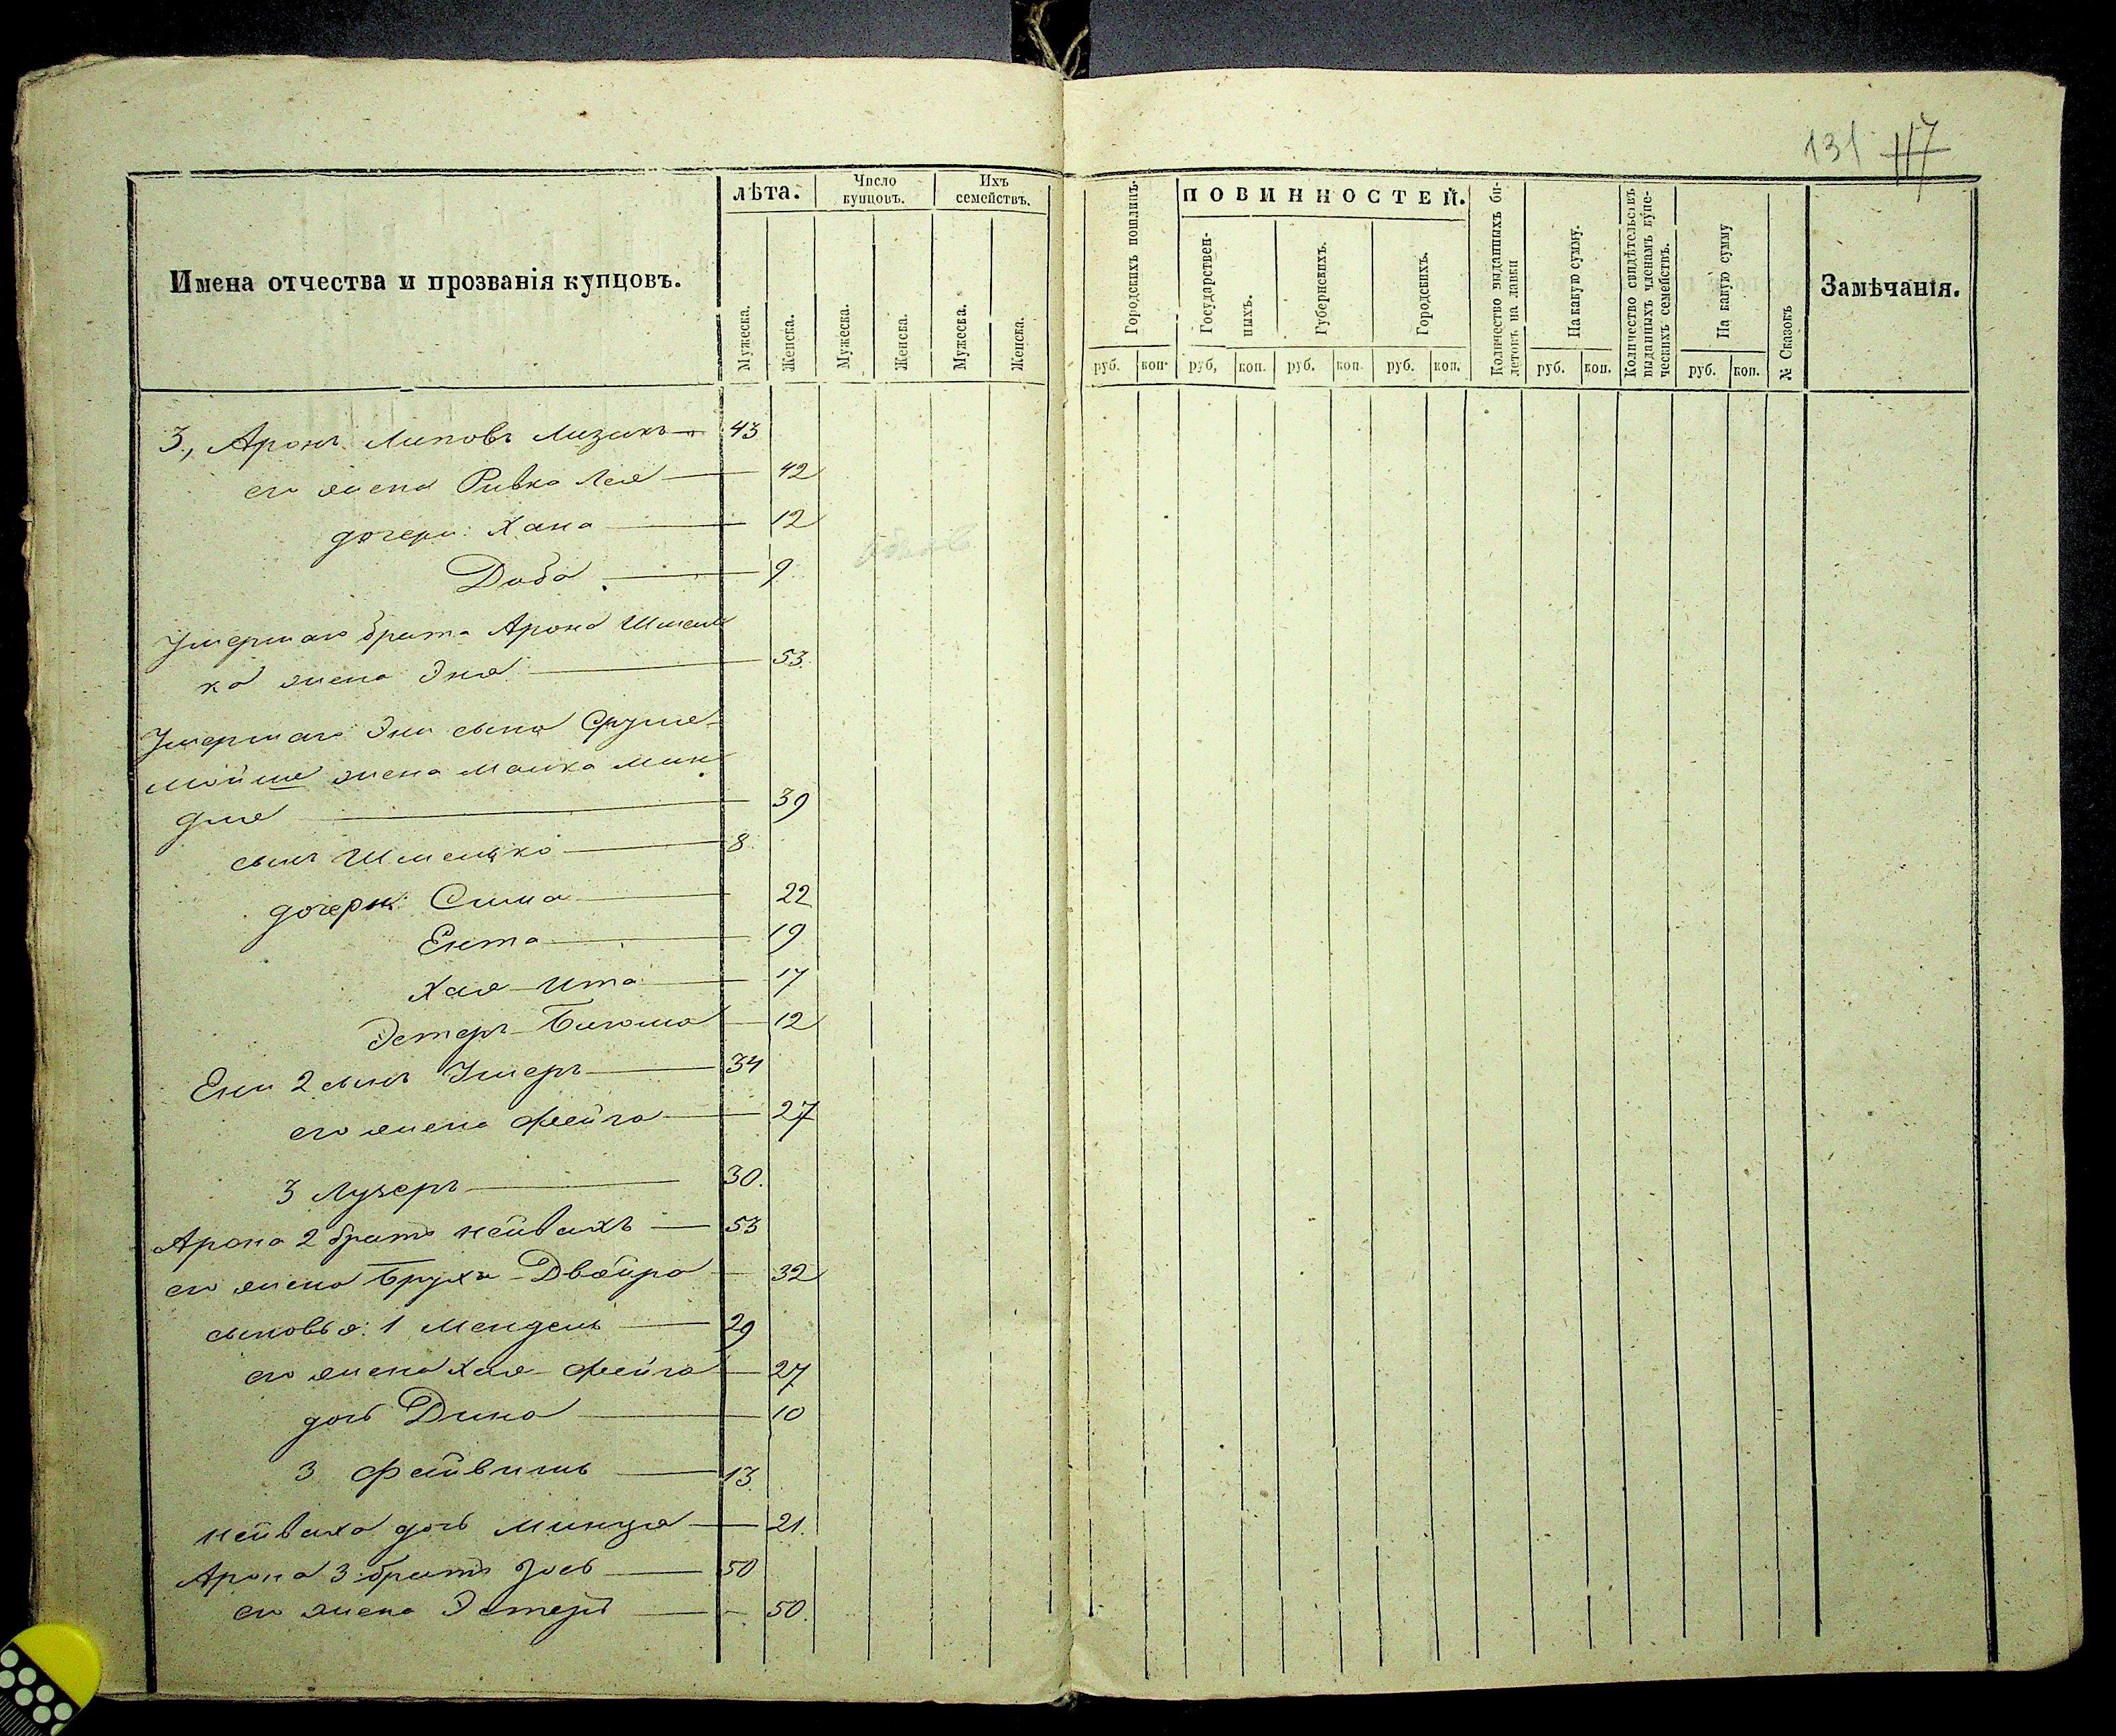 131 117
Имена отчества и прозванія купцовъ.
лѣта.
Мужеска.
Женска.
Число купцовъ.
Мужеска.
Женска.
Ихъ семействъ.
Мужеска.
Женска.
Городскихъ пошлинъ
руб. коп.
ПОВИННОСТЕЙ.
Государственныхъ.
руб, коп.
Губернскихъ.
руб. коп.
Городскихъ.
руб. коп.
Количество выданныхъ билетовъ на лавки
На какую сумму.
руб. коп.
Количество свидѣтельствъ выданныхъ членамъ купеческихъ семействъ.
На какую сумму
руб. коп.
№ Сказокъ
Замѣчанія.
3, Аронъ Липовъ Лизакъ 43
его жена Ривка Лея 42
дочери: Хана 12
Доба 9
Умершаго брата Арона Шмель
ка жена Эня 53.
Умершаго Эни сына Сруле-
Мойше жена Малка Мин
для 39
сынъ Шмелько 8
дочери: Сима 22
Ента 19
Хая-Ита 17
Эстеръ-Блюма 12
Ени 2 сынъ Умеръ 34
его жена Фейга 27
3 Лузеръ 30.
Арона 2 братъ Нейвахъ 53
его жена Бруха-Двойра 32
сыновья: 1 Мендель 29
его жена Хая-Фейга 27
дочь Дина 10
3 Файвишъ 13
Нейваха дочь Минця 21.
Арона 3 братъ Іось 50
его жена Эстеръ 50.